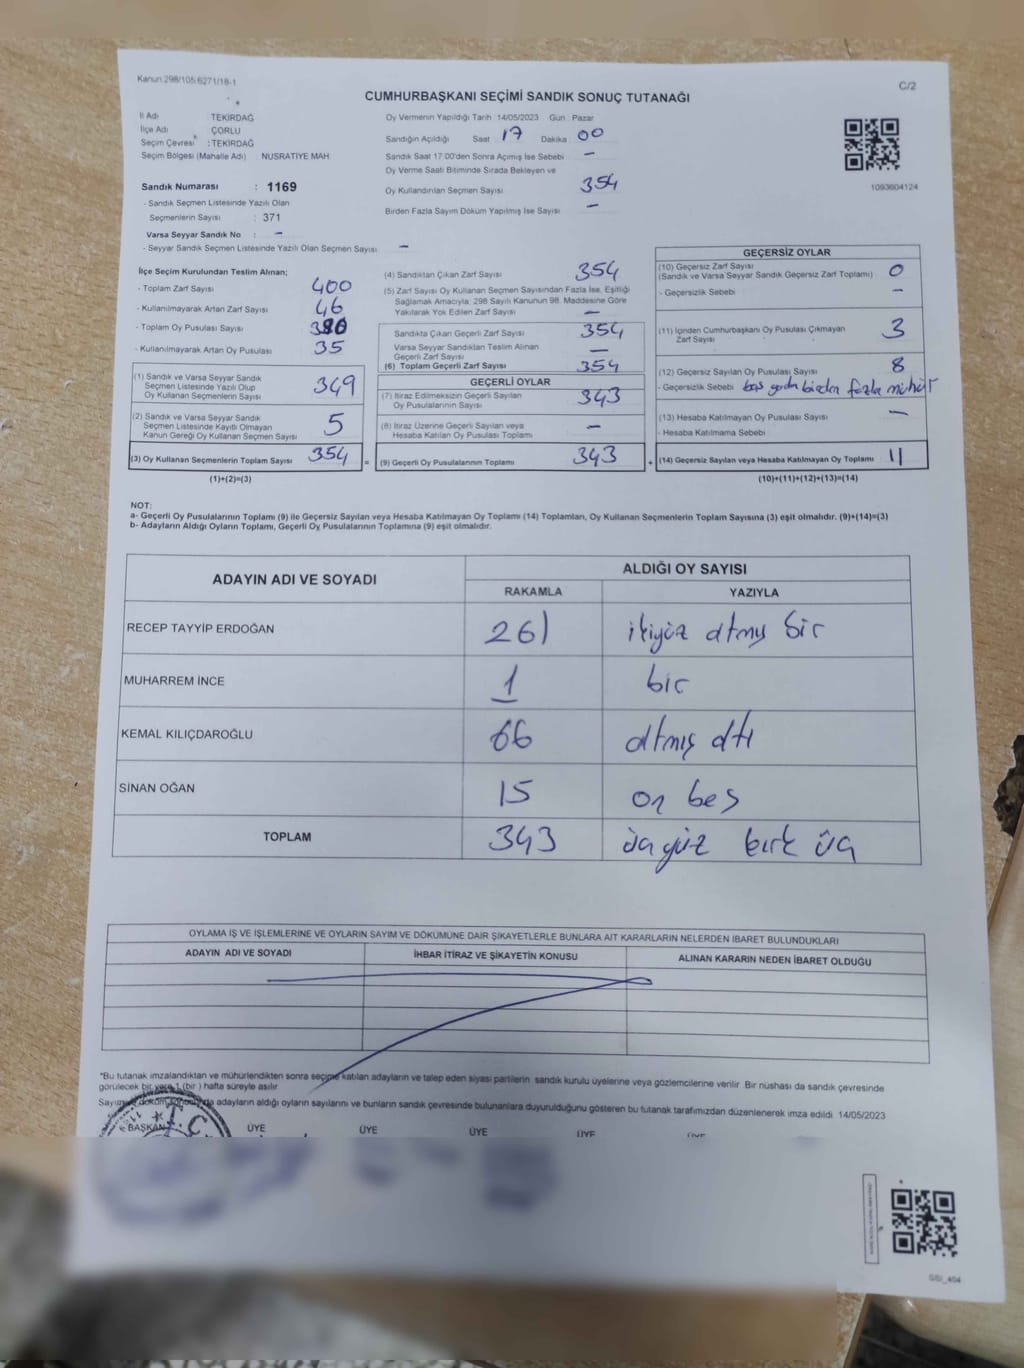 Kanun 298/105,6271/18-1
C/2
CUMHURBAŞKANI SEÇİMİ SANDIK SONUÇ TUTANAĞI
İl Adı TEKİRDAĞ
İlçe Adı ÇORLU
Seçim Çevresi : TEKİRDAĞ
Seçim Bölgesi (Mahalle Adı) NUSRATİYE MAH
Sandık Numarası : 1169
- Sandık Seçmen Listesinde Yazılı Olan
Seçmenlerin Sayısı : 371
Varsa Seyyar Sandık No : –
- Seyyar Sandık Seçmen Listesinde Yazılı Olan Seçmen Sayısı –
Oy Vermenin Yapıldığı Tarih 14/05/2023 Gün Pazar
Sandığın Açıldığı Saat 17 Dakika 00
Sandık Saat 17:00'den Sonra Açımış İse Sebebi –
Oy Verme Saati Bitiminde Sırada Bekleyen ve
Oy Kullandırılan Seçmen Sayısı 354
Birden Fazla Sayım Döküm Yapılmış İse Sayısı –
1093604124
İlçe Seçim Kurulundan Teslim Alınan;
- Toplam Zarf Sayısı 400
- Kullanılmayarak Artan Zarf Sayısı 46
- Toplam Oy Pusulası Sayısı
- Kullanılmayarak Artan Oy Pusulası 35
(1) Sandık ve Varsa Seyyar Sandık
Seçmen Listesinde Yazılı Olup
Oy Kullanan Seçmenlerin Sayısı 349
(2) Sandık ve Varsa Seyyar Sandık
Seçmen Listesinde Kayıtlı Olmayan
Kanun Gereği Oy Kullanan Seçmen Sayısı 5
(3) Oy Kullanan Seçmenlerin Toplam Sayısı 354 =
(1)+(2)=(3)
(4) Sandıktan Çıkan Zarf Sayısı 354
(5) Zarf Sayısı Oy Kullanan Seçmen Sayısından Fazla İse, Eşitliği
Sağlamak Amacıyla, 298 Sayılı Kanunun 98. Maddesine Göre
Yakılarak Yok Edilen Zarf Sayısı –
Sandıkta Çıkan Geçerli Zarf Sayısı 354
Varsa Seyyar Sandıktan Teslim Alınan
Geçerli Zarf Sayısı –
(6) Toplam Geçerli Zarf Sayısı 354
GEÇERLİ OYLAR
(7) İtiraz Edilmeksizin Geçerli Sayılan
Oy Pusulalarının Sayısı 343
(8) İtiraz Üzerine Geçerli Sayılan veya
Hesaba Katılan Oy Pusulası Toplamı –
(9) Geçerli Oy Pusulalarının Toplamı 343 +
GEÇERSİZ OYLAR
(10) Geçersiz Zarf Sayısı
(Sandık ve Varsa Seyyar Sandık Geçersiz Zarf Toplamı) 0
- Geçersizlik Sebebi –
(11) İçinden Cumhurbaşkanı Oy Pusulası Çıkmayan
Zarf Sayısı 3
(12) Geçersiz Sayılan Oy Pusulası Sayısı 8
- Geçersizlik Sebebi birden fazla mühür
(13) Hesaba Katılmayan Oy Pusulası Sayısı –
- Hesaba Katılmama Sebebi
(14) Geçersiz Sayılan veya Hesaba Katılmayan Oy Toplamı 11
(10)+(11)+(12)+(13)=(14)
NOT:
a- Geçerli Oy Pusulalarının Toplamı (9) ile Geçersiz Sayılan veya Hesaba Katılmayan Oy Toplamı (14) Toplamları, Oy Kullanan Seçmenlerin Toplam Sayısına (3) eşit olmalıdır. (9)+(14)=(3)
b- Adayların Aldığı Oyların Toplamı, Geçerli Oy Pusulalarının Toplamına (9) eşit olmalıdır.
ADAYIN ADI VE SOYADI
ALDIĞI OY SAYISI
RAKAMLA YAZIYLA
RECEP TAYYİP ERDOĞAN 261 ikiyüz atmış bir
MUHARREM İNCE 1 bir
KEMAL KILIÇDAROĞLU 66 atmış altı
SİNAN OĞAN 15 on beş
TOPLAM 343 üçyüz kırk üç
OYLAMA İŞ VE İŞLEMLERİNE VE OYLARIN SAYIM VE DÖKÜMÜNE DAİR ŞİKAYETLERLE BUNLARA AİT KARARLARIN NELERDEN İBARET BULUNDUKLARI
ADAYIN ADI VE SOYADI İHBAR İTİRAZ VE ŞİKAYETİN KONUSU ALINAN KARARIN NEDEN İBARET OLDUĞU
*Bu tutanak imzalandıktan ve mühürlendikten sonra seçime katılan adayların ve talep eden siyasi partilerin sandık kurulu üyelerine veya gözlemcilerine verilir. Bir nüshası da sandık çevresinde
görülecek bir yere 1 (bir) hafta süreyle asılır
Sayım adayların aldığı oyların sayılarını ve bunların sandık çevresinde bulunanlara duyurulduğunu gösteren bu tutanak tarafımızdan düzenlenerek imza edildi. 14/05/2023
BAŞKAN ÜYE ÜYE ÜYE ÜYE ÜYE
T.C.